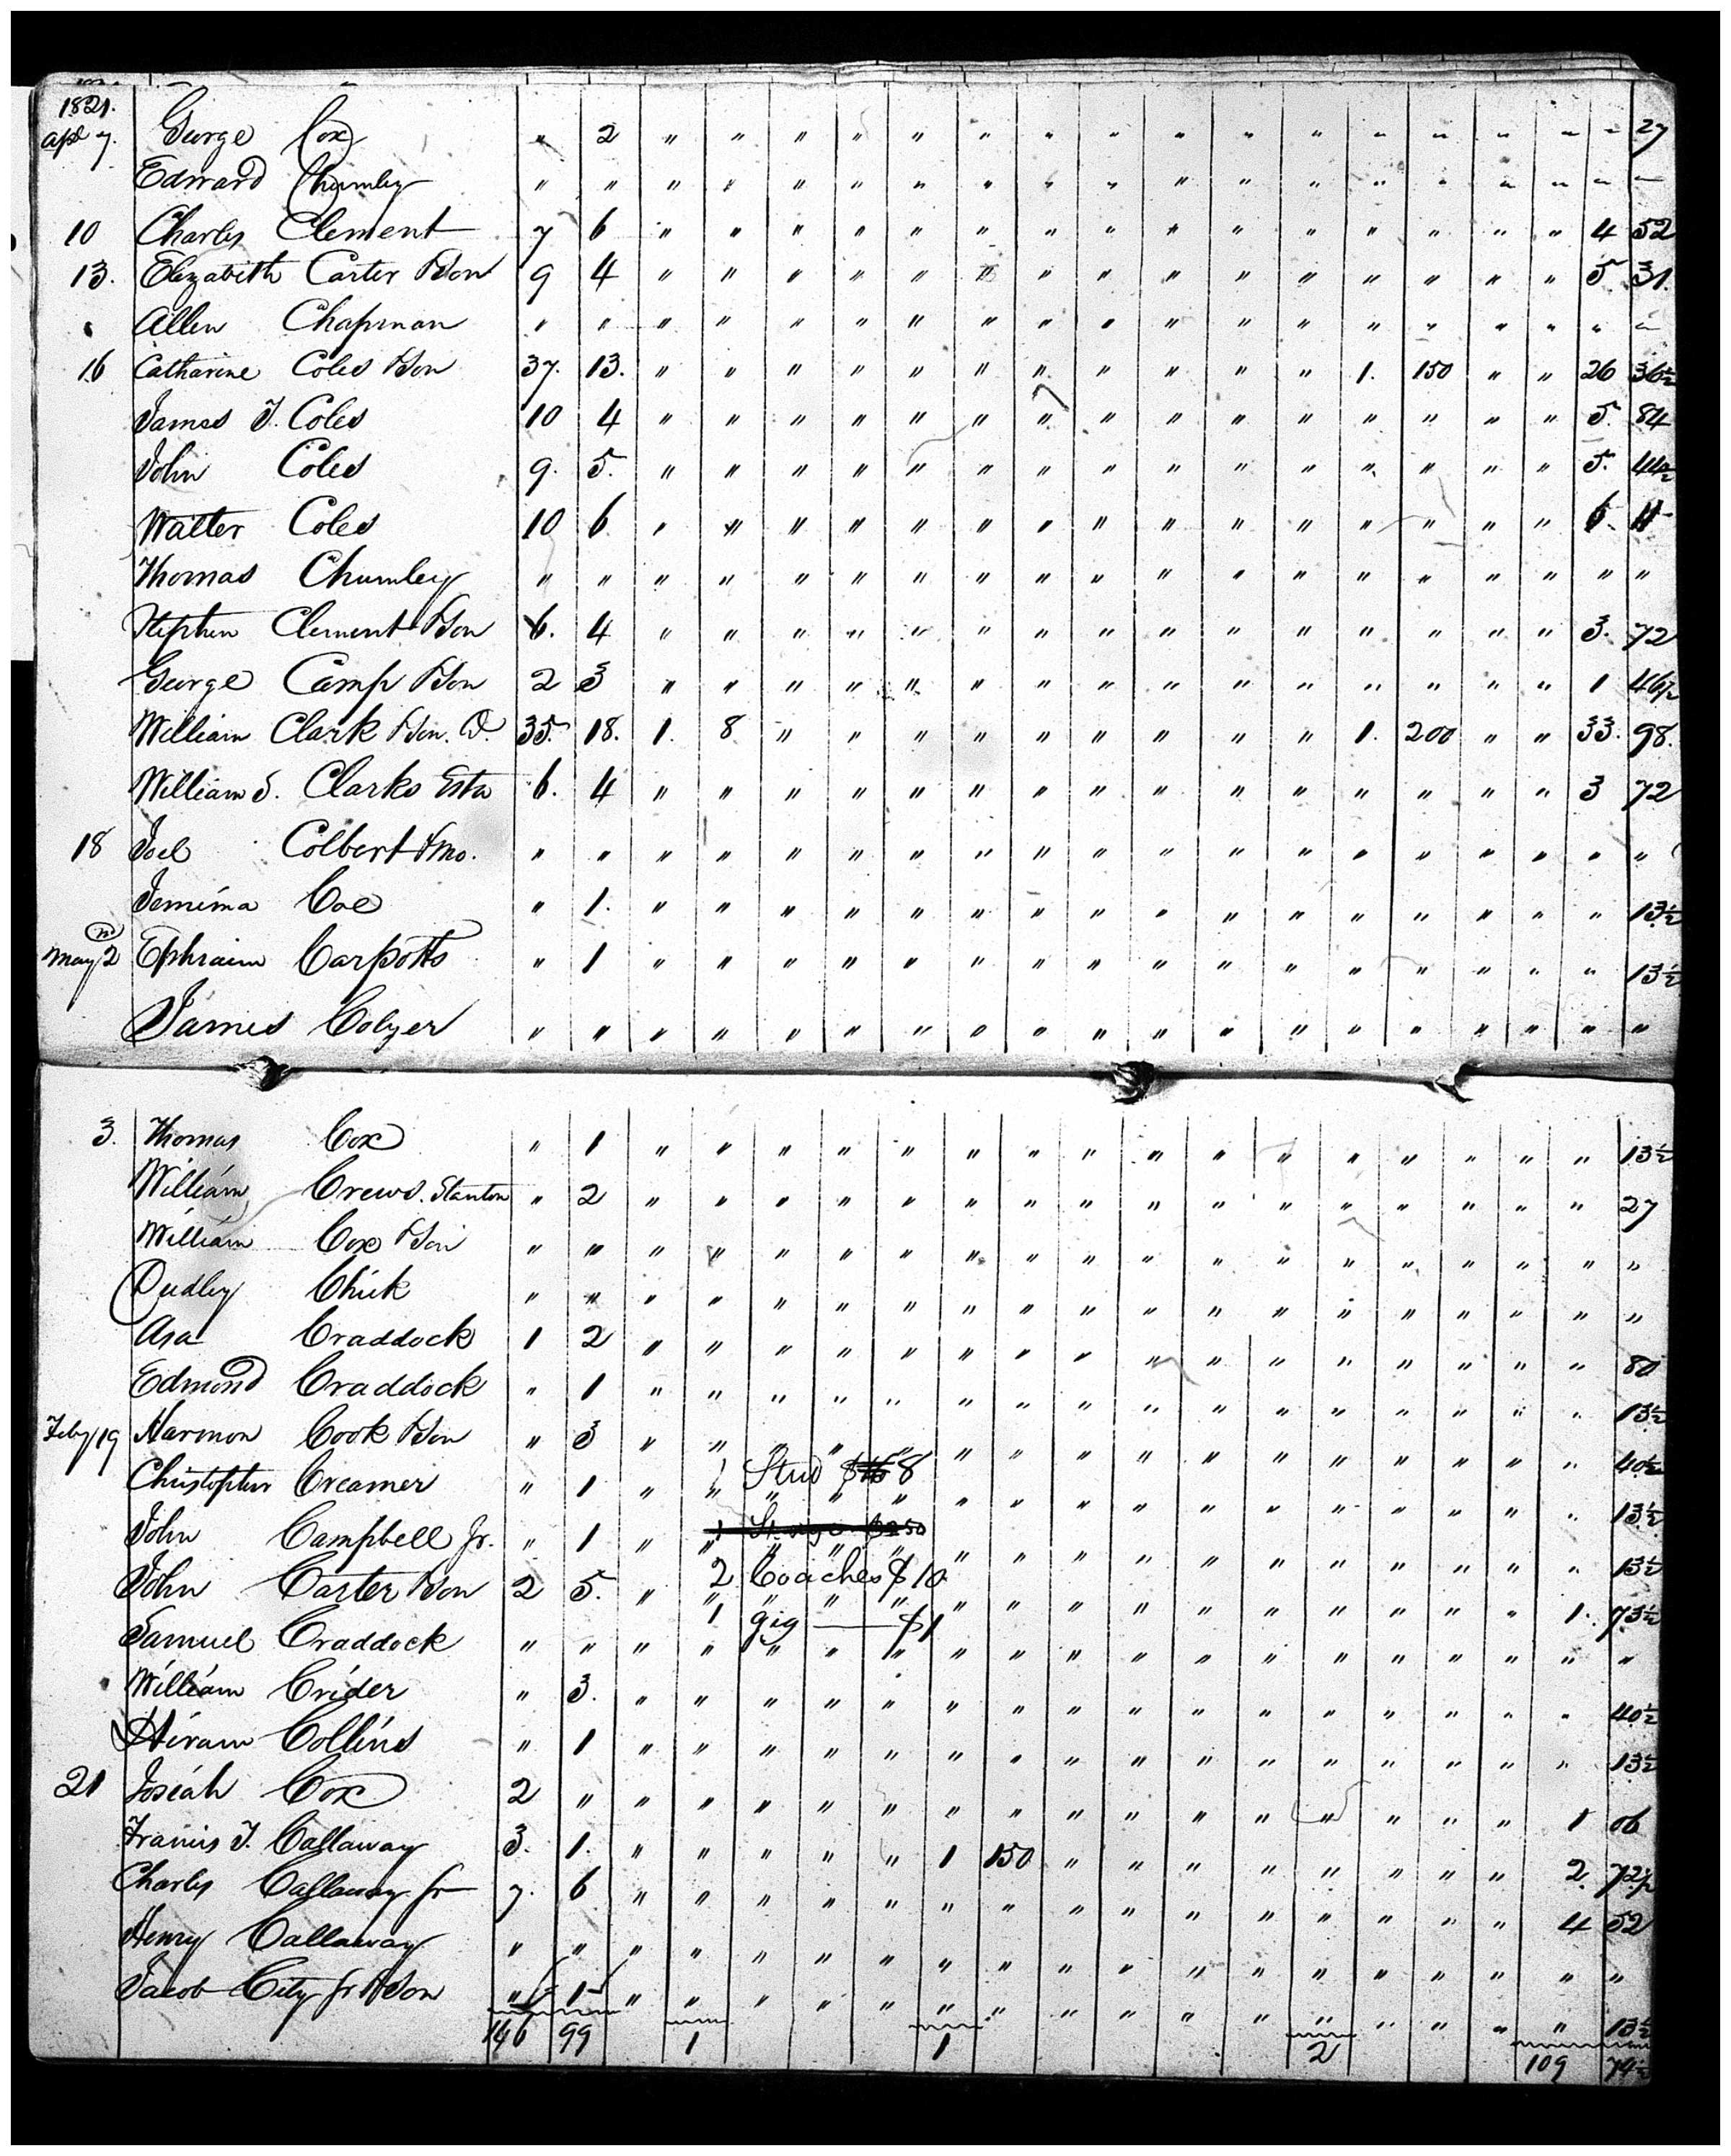 1821.
Apl 7. George Cox " 2 " " " " " " " " " " " " " " " " 27
Edward Chumley " " " " " " " " " " " " " " " " " " "
10 Charles Clement 7 6 " " " " " " " " " " " " " " " 4 52
13. Elizabeth Carter &Son 9 4 " " " " " " " " " " " " " " " 5. 31.
Allen Chapman " " " " " " " " " " " " " " " " " " "
16 Catharine Coles &Son 37. 13. " " " " " " " " " " " 1. 150 " " 26 36½
James T. Coles 10 4 " " " " " " " " " " " " " " " 5. 84
John Coles 9. 5. " " " " " " " " " " " " " " " 5. 44½
Walter Coles 10 6 " " " " " " " " " " " " " " " 6. 11
Thomas Chumley " " " " " " " " " " " " " " " " " " "
Stephen Clement &Son 6. 4 " " " " " " " " " " " " " " " 3. 72
George Camp &Son 2 3 " " " " " " " " " " " " " " " 1 46½
William Clark &Son. D. 35. 18. 1. 8 " " " " " " " " " 1. 200 " " 33. 98.
William S. Clarks Esta 6. 4 " " " " " " " " " " " " " " " 3 72
18 Joel Colbert fmo. " " " " " " " " " " " " " " " " " " "
Jemima Coe " 1. " " " " " " " " " " " " " " " " 13½
May 2 Ephraim Carpotts " 1 " " " " " " " " " " " " " " " " 13½
James Colyer " " " " " " " " " " " " " " " " " " "
3. Thomas Cox " 1 " " " " " " " " " " " " " " " " 13½
William Crews. Stanton " 2 " " " " " " " " " " " " " " " " 27
William Cox &Son " " " " " " " " " " " " " " " " " " "
Dudley Chick " " " " " " " " " " " " " " " " " " "
Asa Craddock 1 2 " " " " " " " " " " " " " " " " 80
Edmond Craddock " 1 " " " " " " " " " " " " " " " " 13½
Feby 19 Harmon Cook &Son " 3 " " " " " " " " " " " " " " " " 40½
1 Stud $ 8
Christopher Creamer " 1 " " " " " " " " " " " " " " " " 13½
John Campbell Jr. " 1 " " " " " " " " " " " " " " " " 13½
2 Coaches $10
John Carter &Son 2 5. " " " " " " " " " " " " " " " 1. 73½
1 gig $1
Samuel Craddock " " " " " " " " " " " " " " " " " " "
William Crider " 3. " " " " " " " " " " " " " " " " 40½
Hiram Collins " 1 " " " " " " " " " " " " " " " " 13½
21 Josiah Cox 2 " " " " " " " " " " " " " " " " 1 06
Francis T. Callaway 3. 1. " " " " " 1 150 " " " " " " " " 2. 72½
Charles Callaway Jr 7. 6 " " " " " " " " " " " " " " " 4 52
Henry Callaway " " " " " " " " " " " " " " " " " " "
Jacob City Jr &Son " 1 " " " " " " " " " " " " " " " " 13½
146 99 1 1 2 109 74½